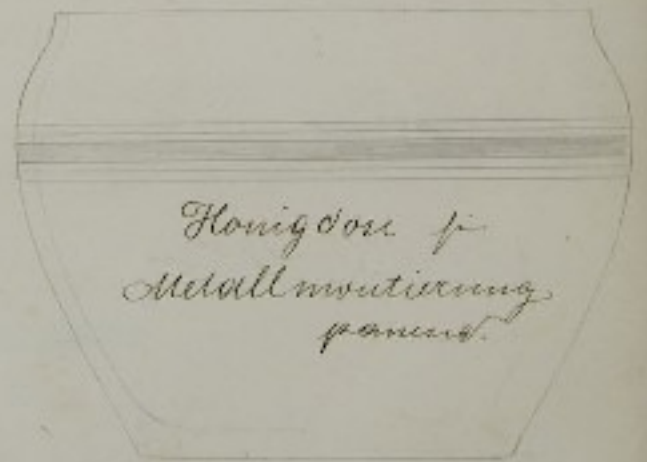 Honigdose f.
Metallmontierung
passend.